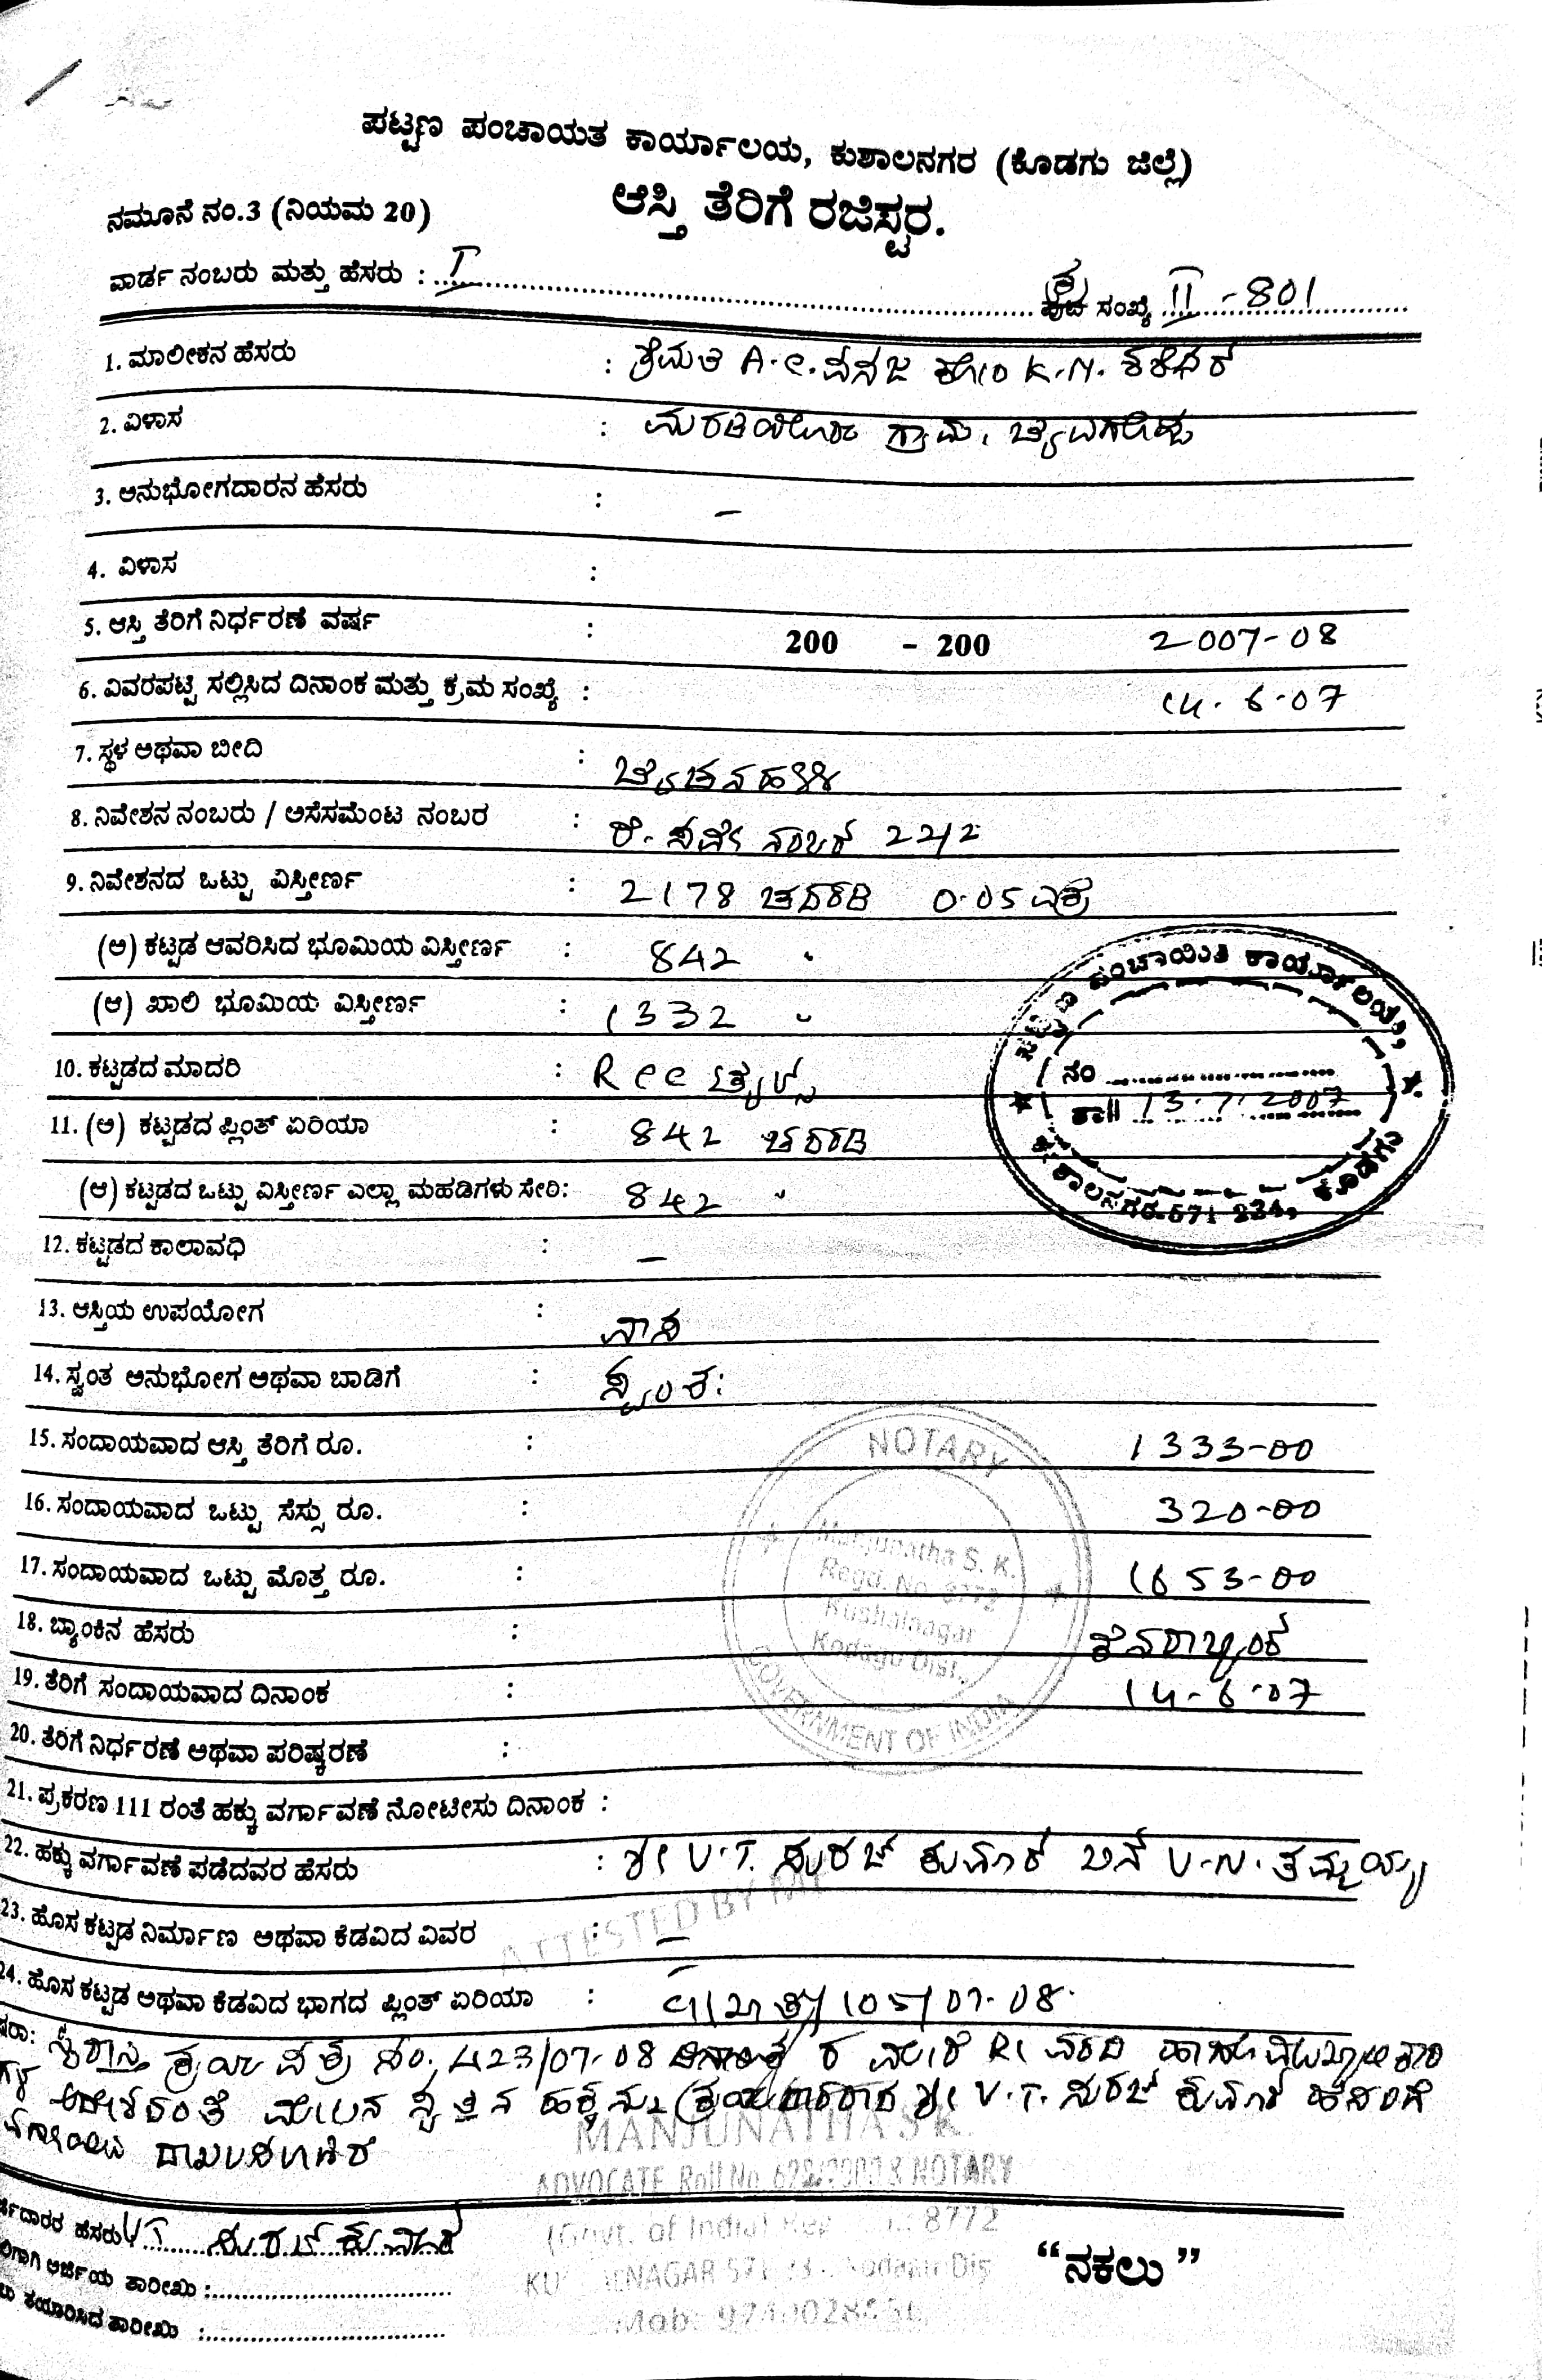 ಪಟ್ಟಣ ಪಂಚಾಯತ ಕಾರ್ಯಾಲಯ, ಕುಶಾಲನಗರ (ಕೊಡಗು ಜಿಲ್ಲೆ)
ಆಸ್ತಿ ತೆರಿಗೆ ರಜಿಸ್ಟರ.
ನಮೂನೆ ನಂ.3 (ನಿಯಮ 20)
ವಾರ್ಡ ನಂಬರು ಮತ್ತು ಹೆಸರು : I ಸಂಖ್ಯೆ II-801
1. ಮಾಲೀಕನ ಹೆಸರು : ಶ್ರೀಮತಿ A.C. ವನಜ ಕೋಂ K.N. ಶಶಿಧರ
2. ವಿಳಾಸ : ಗ್ರಾಮ,
3. ಅನುಭೋಗದಾರನ ಹೆಸರು : –
4. ವಿಳಾಸ :
5. ಆಸ್ತಿ ತೆರಿಗೆ ನಿರ್ಧರಣೆ ವರ್ಷ : 200 – 200 2007-08
6. ವಿವರಪಟ್ಟಿ ಸಲ್ಲಿಸಿದ ದಿನಾಂಕ ಮತ್ತು ಕ್ರಮ ಸಂಖ್ಯೆ : 14-6-07
7. ಸ್ಥಳ ಅಥವಾ ಬೀದಿ : ಬೈಚನಹಳ್ಳಿ
8. ನಿವೇಶನ ನಂಬರು / ಅಸೆಸಮೆಂಟ ನಂಬರ : ರೀ. ಸರ್ವೆ ನಂಬರ್ 22/2
9. ನಿವೇಶನದ ಒಟ್ಟು ವಿಸ್ತೀರ್ಣ : 2178 ಚದರಡಿ 0.05 ಎಕ್ರೆ
(ಅ) ಕಟ್ಟಡ ಆವರಿಸಿದ ಭೂಮಿಯ ವಿಸ್ತೀರ್ಣ : 842 "
(ಆ) ಖಾಲಿ ಭೂಮಿಯ ವಿಸ್ತೀರ್ಣ : 1332 "
10. ಕಟ್ಟಡದ ಮಾದರಿ : RCC
11. (ಅ) ಕಟ್ಟಡದ ಪ್ಲಿಂತ್ ಏರಿಯಾ : 842 ಚದರಡಿ
(ಆ) ಕಟ್ಟಡದ ಒಟ್ಟು ವಿಸ್ತೀರ್ಣ ಎಲ್ಲಾ ಮಹಡಿಗಳು ಸೇರಿ: 842 "
12. ಕಟ್ಟಡದ ಕಾಲಾವಧಿ : –
13. ಆಸ್ತಿಯ ಉಪಯೋಗ : ವಾಸ
14. ಸ್ವಂತ ಅನುಭೋಗ ಅಥವಾ ಬಾಡಿಗೆ : ಸ್ವಂತ:
15. ಸಂದಾಯವಾದ ಆಸ್ತಿ ತೆರಿಗೆ ರೂ. : 1333-00
16. ಸಂದಾಯವಾದ ಒಟ್ಟು ಸೆಸ್ಸು ರೂ. : 320-00
17. ಸಂದಾಯವಾದ ಒಟ್ಟು ಮೊತ್ತ ರೂ. : 1653-00
18. ಬ್ಯಾಂಕಿನ ಹೆಸರು :
19. ತೆರಿಗೆ ಸಂದಾಯವಾದ ದಿನಾಂಕ : 14-6-07
20. ತೆರಿಗೆ ನಿರ್ಧರಣೆ ಅಥವಾ ಪರಿಷ್ಕರಣೆ :
21. ಪ್ರಕರಣ 111 ರಂತೆ ಹಕ್ಕು ವರ್ಗಾವಣೆ ನೋಟೀಸು ದಿನಾಂಕ :
22. ಹಕ್ಕು ವರ್ಗಾವಣೆ ಪಡೆದವರ ಹೆಸರು : ಶ್ರೀ V.T. ಸುರಜ್ ಕುಮಾರ್ ಬಿನ್ V.N. ತಮ್ಮಯ್ಯ
23. ಹೊಸ ಕಟ್ಟಡ ನಿರ್ಮಾಣ ಅಥವಾ ಕೆಡವಿದ ವಿವರ : –
24. ಹೊಸ ಕಟ್ಟಡ ಅಥವಾ ಕೆಡವಿದ ಭಾಗದ ಪ್ಲಿಂತ್ ಏರಿಯಾ : 105/07-08
ಷರಾ: ಕ್ರಯ ಪತ್ರ ನಂ. 423/07-08 ರ RI ವರದಿ
ಮೇಲಿನ ಸ್ವತ್ತಿನ ಹಕ್ಕನ್ನು ಶ್ರೀ V.T. ಸುರಜ್ ಕುಮಾರ್ ಹೆಸರಿಗೆ
ದಾಖಲಿಸಲಾಗಿದೆ
ಹೆಸರು V.T. ಸುರಜ್ ಕುಮಾರ್
ಅರ್ಜಿಯ ತಾರೀಖು :
ತಯಾರಿಸಿದ ತಾರೀಖು :
“ನಕಲು”
ಪಟ್ಟಣ ಪಂಚಾಯಿತಿ ಕಾರ್ಯಾಲಯ,
ನಂ
ತಾ|| 13-7-2007
ಕುಶಾಲನಗರ-571 234, ಕೊಡಗು
NOTARY
Manjunatha S. K.
Regd. No. 8772
Kushalnagar
Kodagu Dist.,
GOVERNMENT OF INDIA
ATTESTED BY ME
MANJUNATHA S.K.
ADVOCATE Roll No. & NOTARY
(Govt. of India) 8772